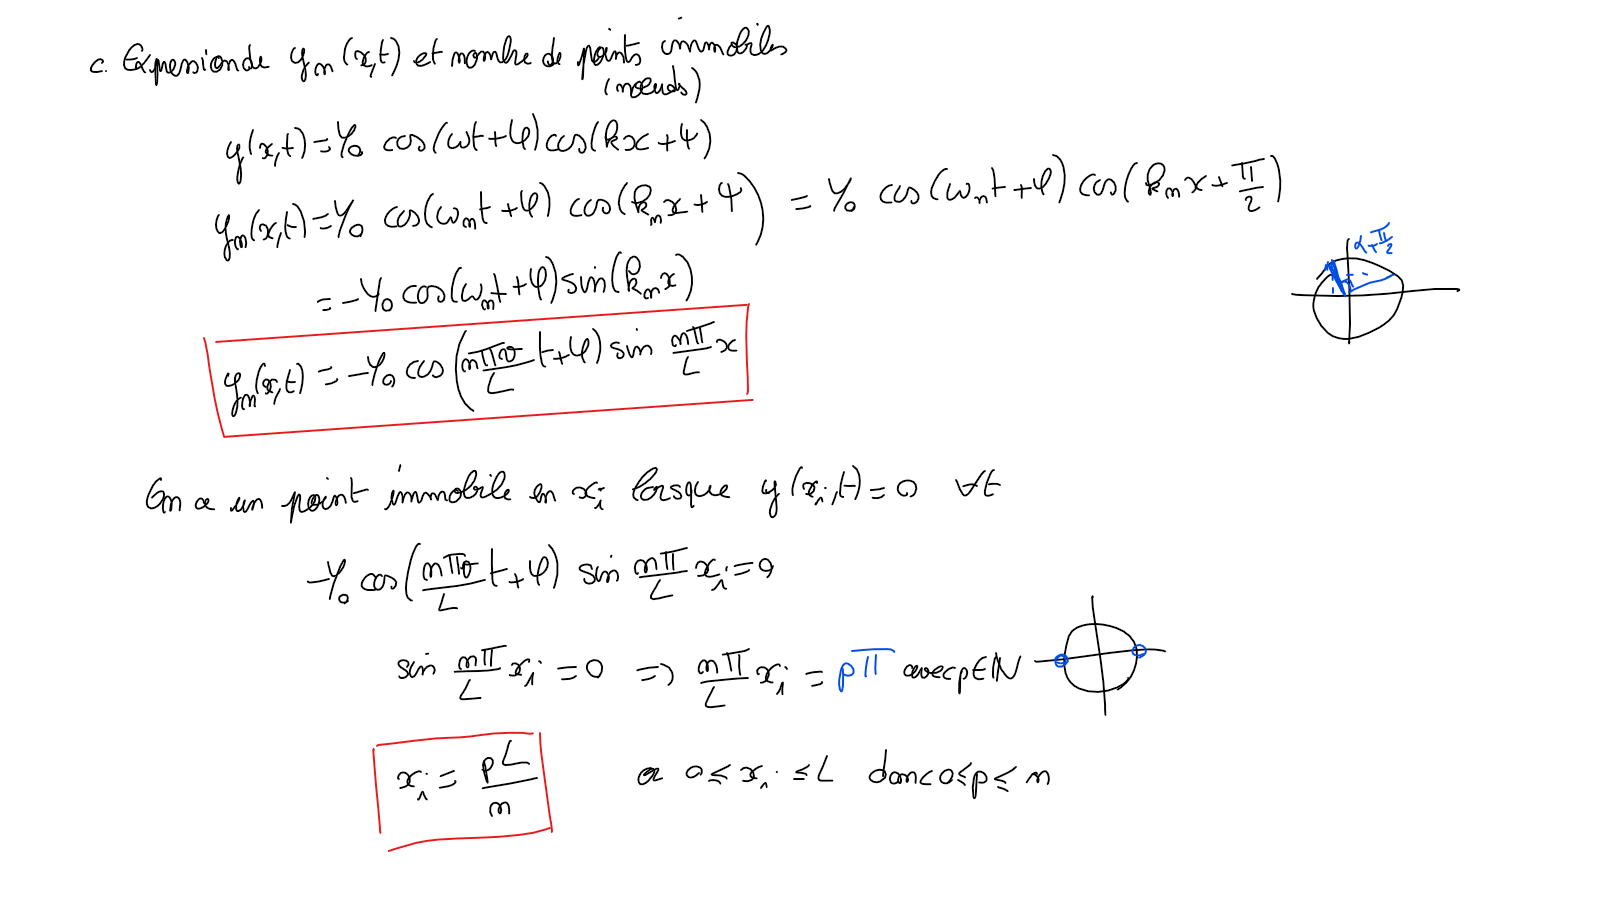 c. Expression de yₙ(x,t) et nombre de points immobiles
(nœuds)
y(x,t) = Y₀ cos(ωt+φ) cos(kx+ψ)
yₙ(x,t) = Y₀ cos(ωₙt+φ) cos(kₙx+ψ) = Y₀ cos(ωₙt+φ) cos(kₙx+π/2)
α+π/2
= -Y₀ cos(ωₙt+φ) sin(kₙx)
yₙ(x,t) = -Y₀ cos(nπv/L t+φ) sin nπ/L x
On a un point immobile en xᵢ lorsque y(xᵢ,t) = 0 ∀t
-Y₀ cos(nπv/L t+φ) sin nπ/L xᵢ = 0
sin nπ/L xᵢ = 0 => nπ/L xᵢ = pπ avec p∈ℕ
xᵢ = pL/n or 0 ≤ xᵢ ≤ L donc 0 ≤ p ≤ n